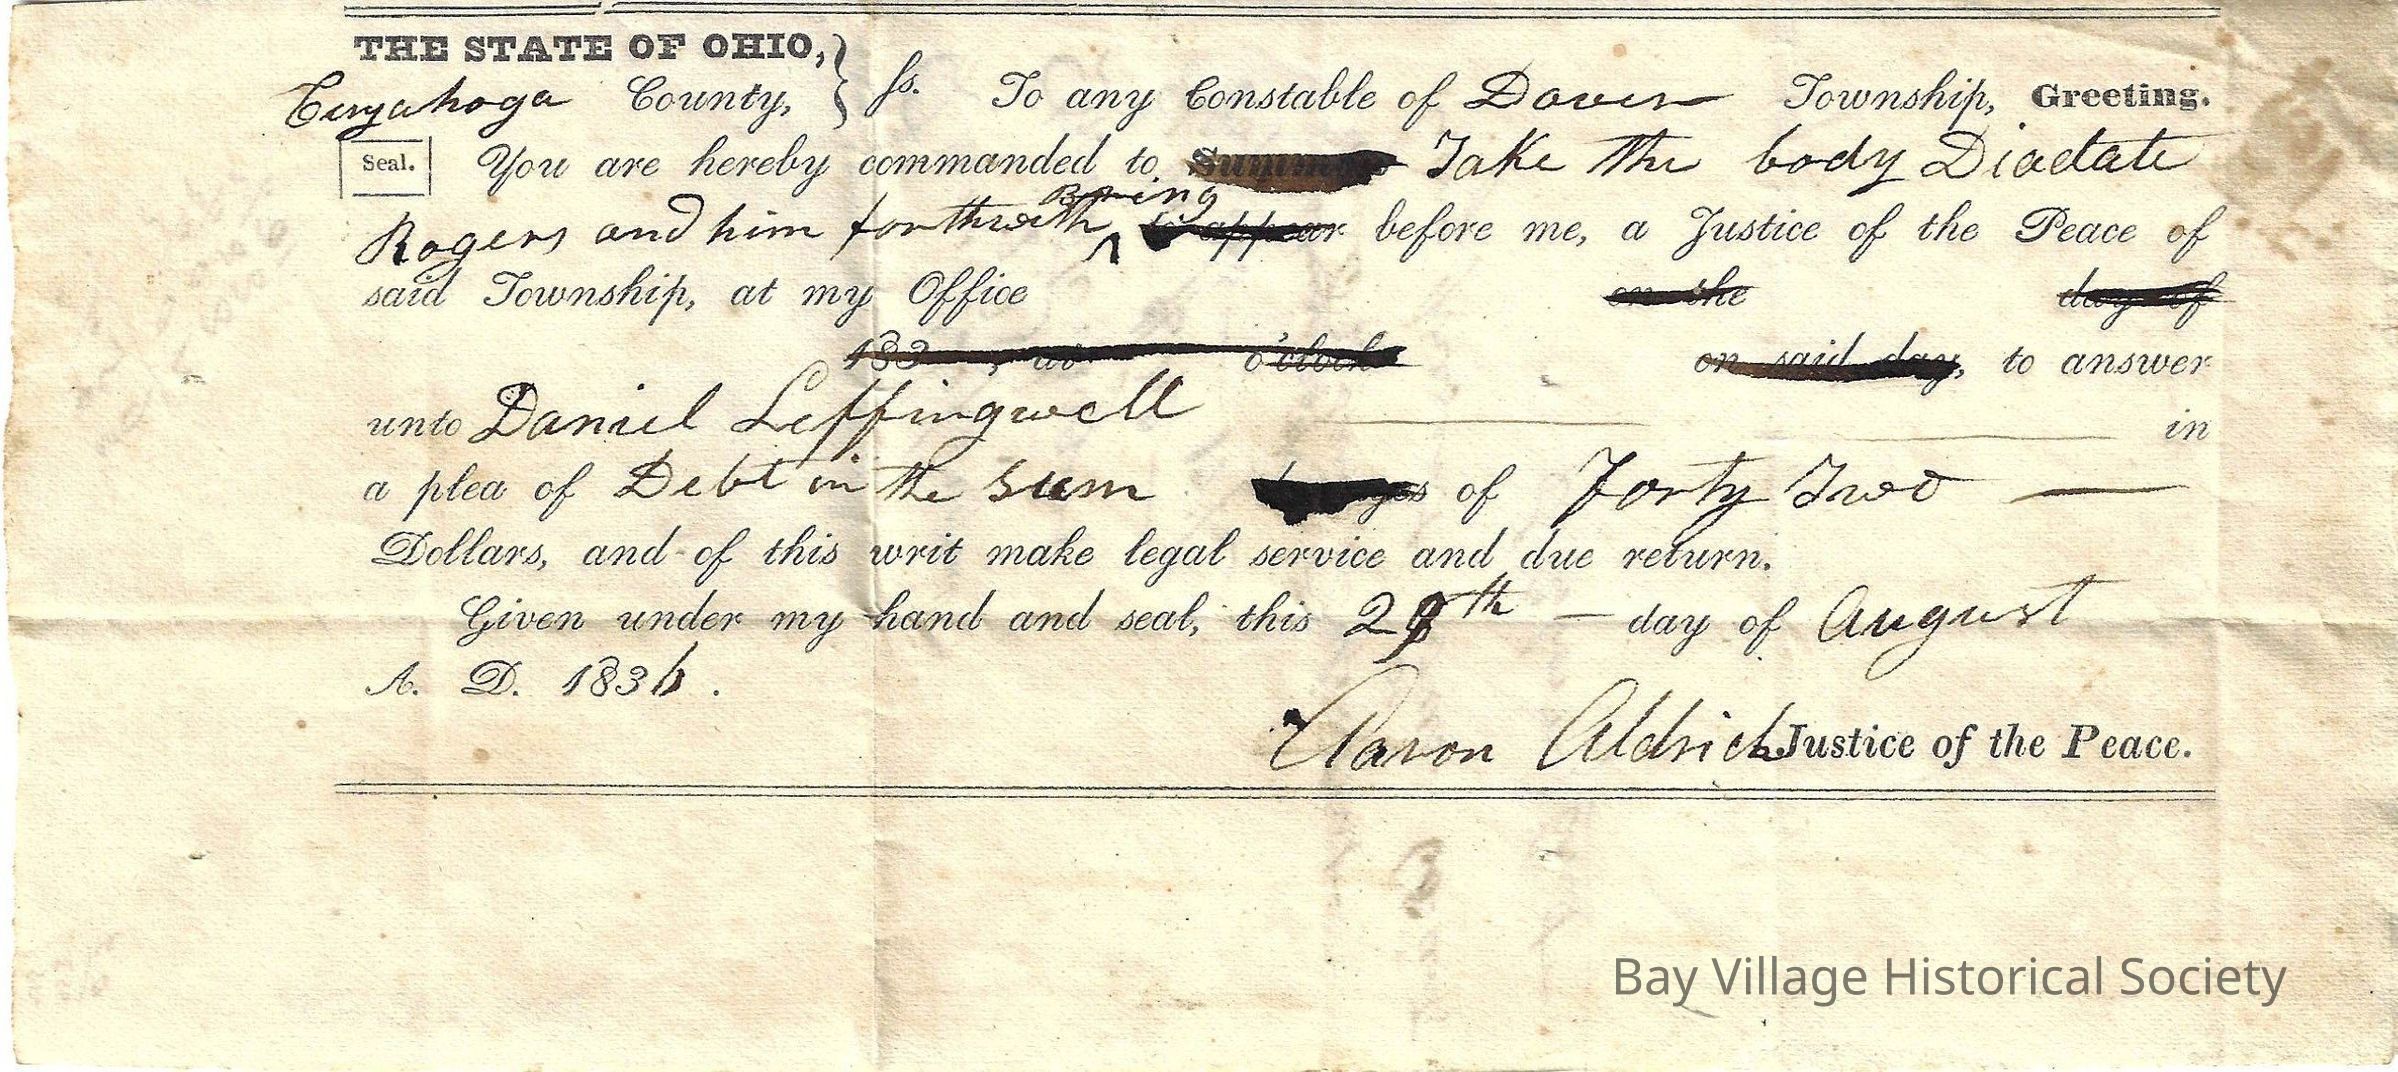 THE STATE OF OHIO,
Cuyahoga County, } ss. To any Constable of Dover Township, Greeting.
Seal. You are hereby commanded to Summon Take the body Diadate
Rogers and him forthwith Bring to appear before me, a Justice of the Peace of
said Township, at my Office on the day of
183 , at o'clock on said day, to answer
unto Daniel Leffingwell in
a plea of Debt in the sum of Forty Two
Dollars, and of this writ make legal service and due return.
Given under my hand and seal, this 29th day of August
A. D. 1836.
Aaron Aldrich Justice of the Peace.
Bay Village Historical Society